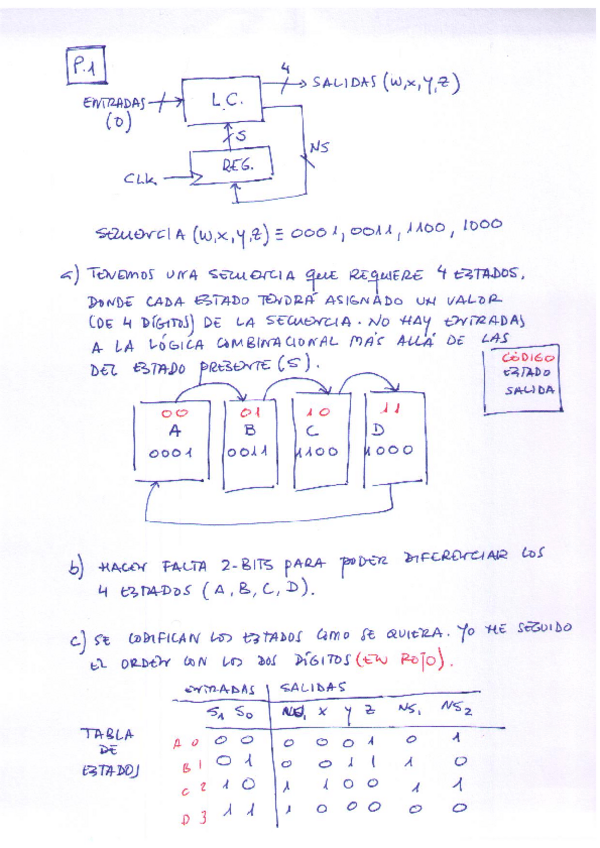 P.1
4
SALIDAS (W,X,Y,Z)
ENTRADAS
(0)
L.C.
S
NS
REG.
CLK
SECUENCIA (W,X,Y,Z) ≡ 0001, 0011, 1100, 1000
a) TENEMOS UNA SECUENCIA QUE REQUIERE 4 ESTADOS,
DONDE CADA ESTADO TENDRÁ ASIGNADO UN VALOR
(DE 4 DÍGITOS) DE LA SECUENCIA. NO HAY ENTRADAS
A LA LÓGICA COMBINACIONAL MÁS ALLÁ DE LAS
DEL ESTADO PRESENTE (S).
CÓDIGO
ESTADO
SALIDA
00 01 10 11
A B C D
0001 0011 1100 1000
b) HACEN FALTA 2-BITS PARA PODER DIFERENCIAR LOS
4 ESTADOS (A, B, C, D).
c) SE CODIFICAN LOS ESTADOS COMO SE QUIERA. YO HE SEGUIDO
EL ORDEN CON LOS DOS DÍGITOS (EN ROJO).
ENTRADAS SALIDAS
S1 S0 X Y Z NS1 NS2
TABLA
DE
ESTADOS
A 0 0 0 0 0 0 1 0 1
B 1 0 1 0 0 1 1 1 0
C 2 1 0 1 1 0 0 1 1
D 3 1 1 1 0 0 0 0 0